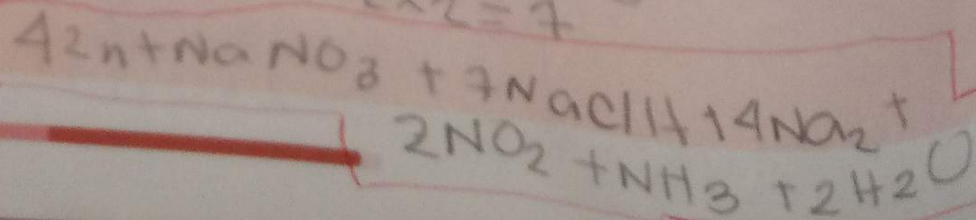 2=7
4Zn+NaNO3 + 7NaClH+4Na2+
2NO2 +NH3 +2H2O